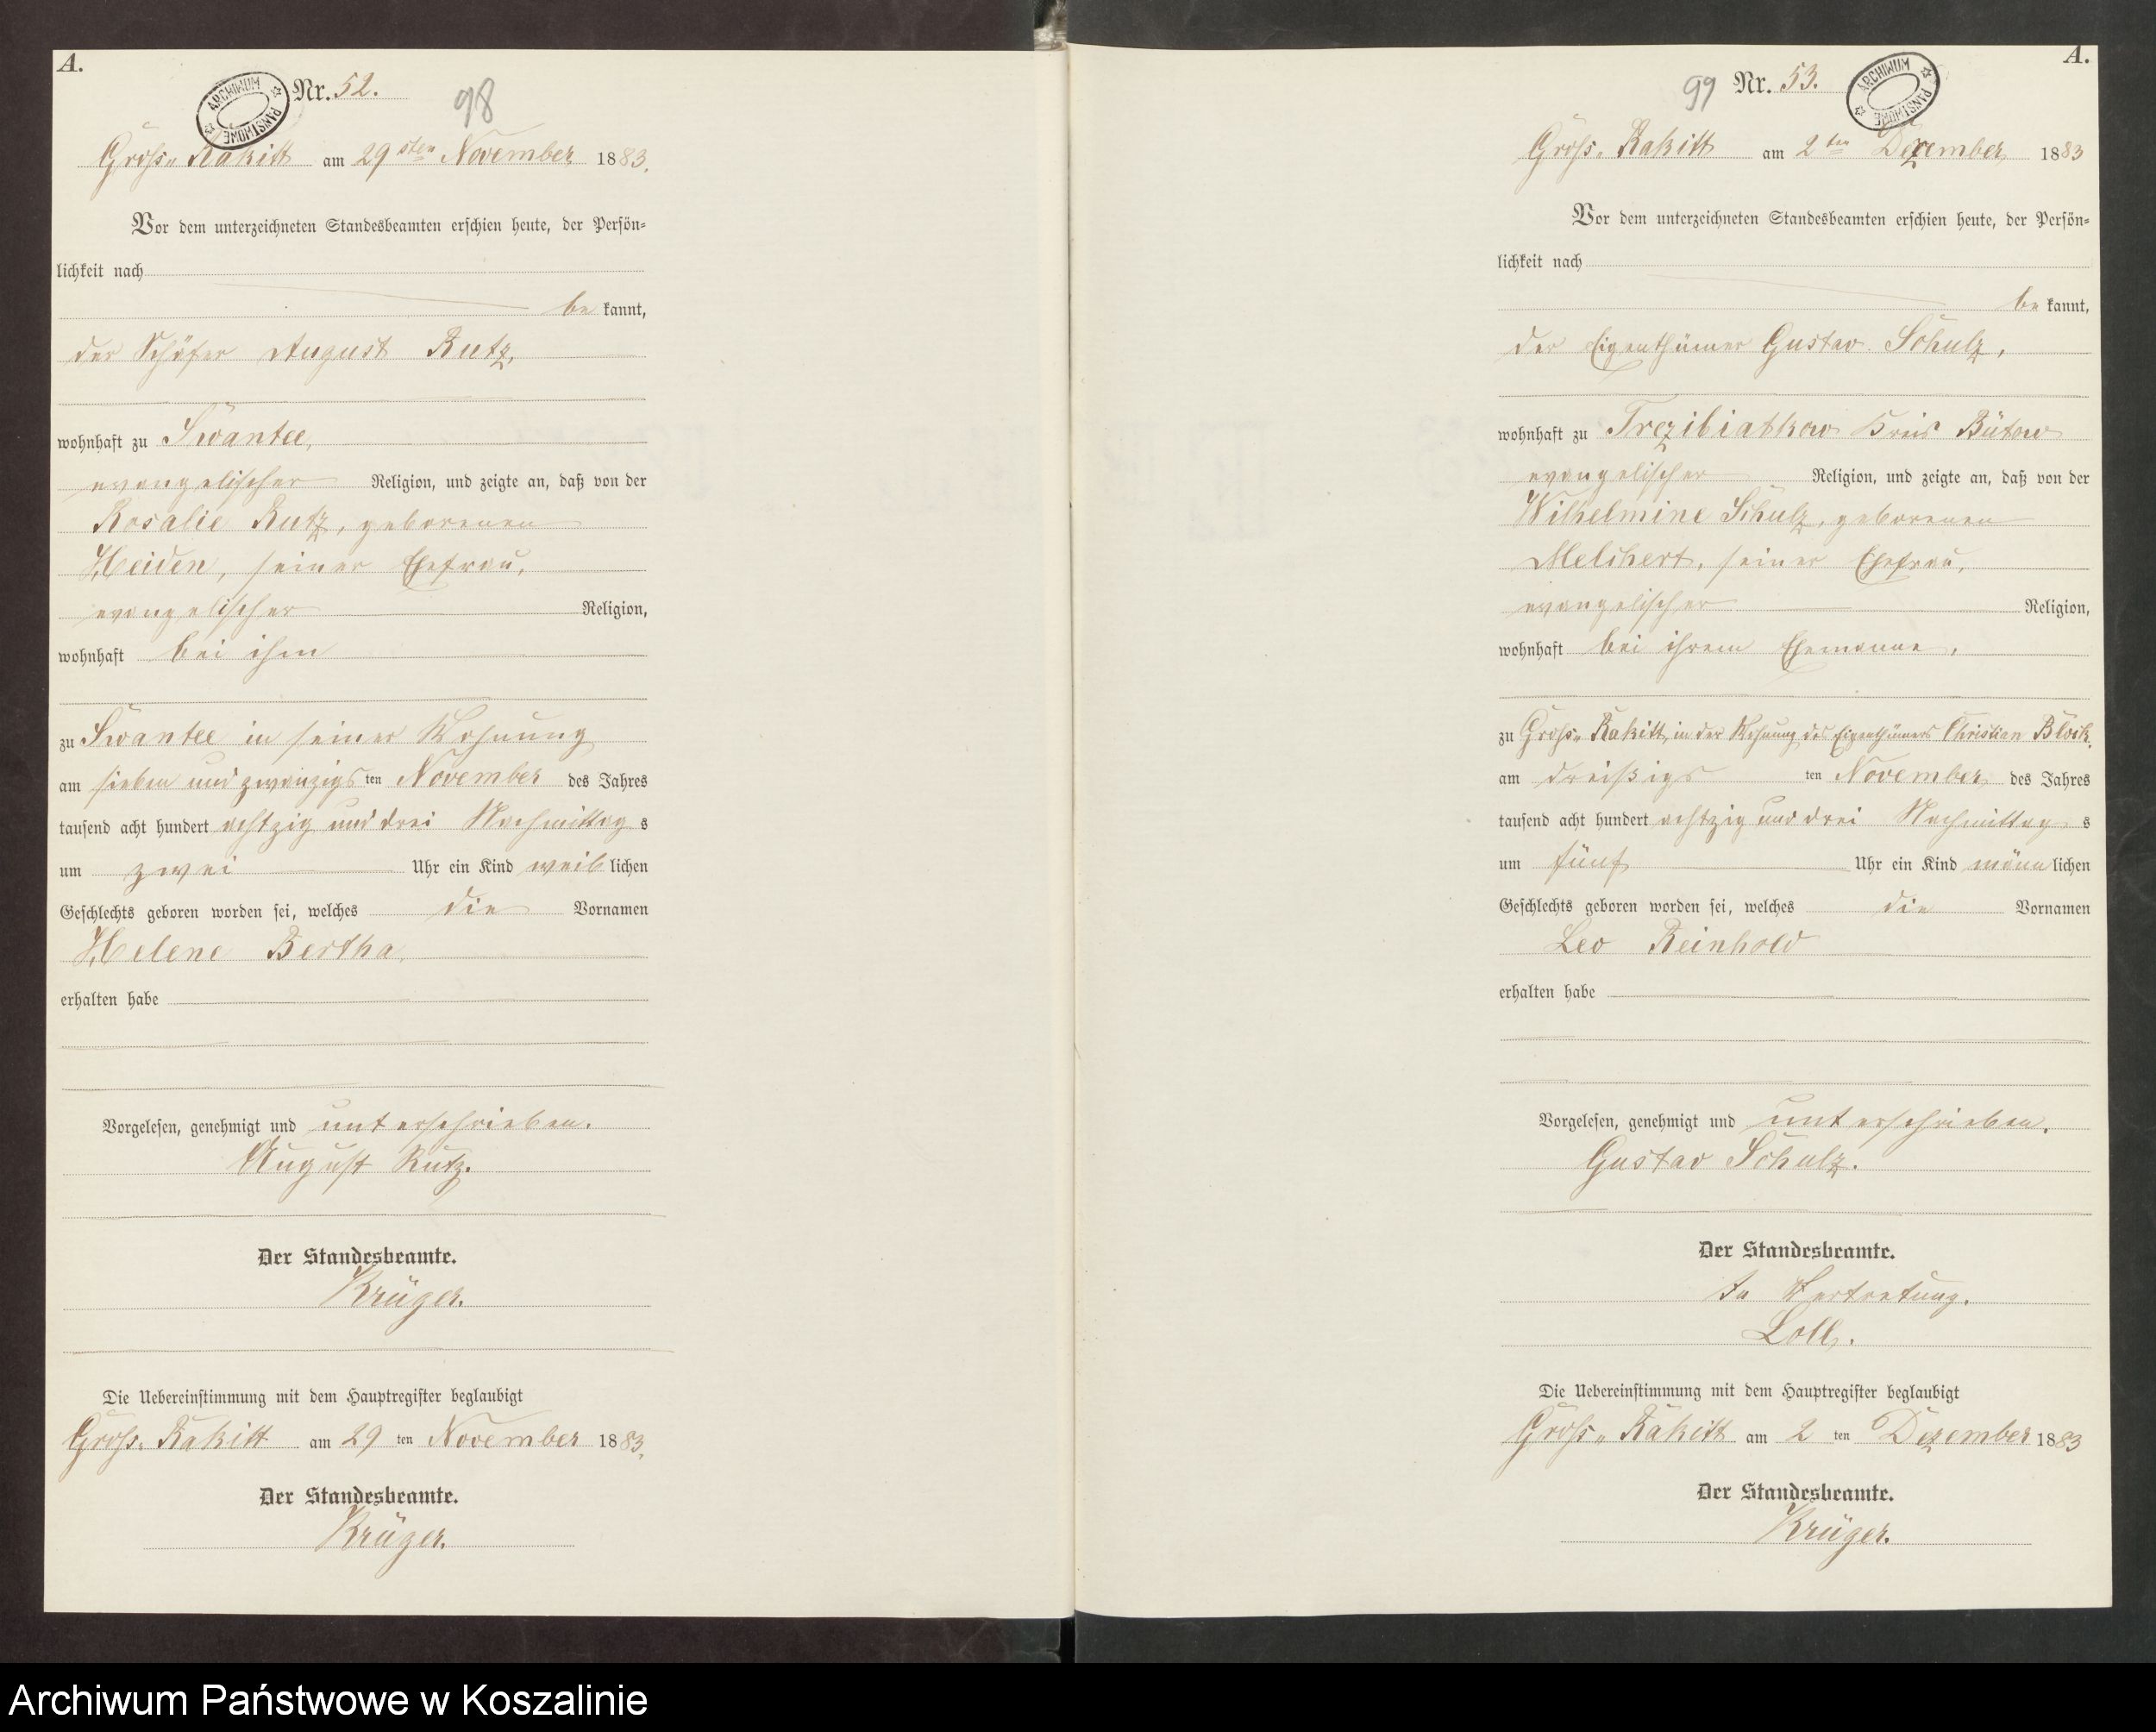 A.
ARCHIWUM PAŃSTWOWE
Nr. 52.
98
Gross„ Rakitt am 29sten November 1883.
Vor dem unterzeichneten Standesbeamten erschien heute, der Persön-
lichkeit nach
be kannt,
der Schäfer August Rutz,
wohnhaft zu Swantee,
evangelischer Religion, und zeigte an, daß von der
Rosalie Rutz, geborenen
Heiden, seiner Ehefrau,
evangelischer Religion,
wohnhaft bei ihm
zu Swantee in seiner Wohnung
am sieben und zwanzigs ten November des Jahres
tausend acht hundert achtzig und drei Nachmittag s
um zwei Uhr ein Kind weib lichen
Geschlechts geboren worden sei, welches die Vornamen
Helene Bertha
erhalten habe
Vorgelesen, genehmigt und unterschrieben.
August Rutz.
Der Standesbeamte.
Krüger.
Die Uebereinstimmung mit dem Hauptregister beglaubigt
Gross„ Rakitt am 29 ten November 1883.
Der Standesbeamte.
Krüger.
A.
99
Nr. 53.
ARCHIWUM PAŃSTWOWE
Gross„ Rakitt am 2ten Dezember 1883
Vor dem unterzeichneten Standesbeamten erschien heute, der Persön-
lichkeit nach
be kannt,
der Eigenthümer Gustav Schulz,
wohnhaft zu Trezibiatkow Kreis Bütow
evangelischer Religion, und zeigte an, daß von der
Wilhelmine Schulz, geborenen
Melchert, seiner Ehefrau,
evangelischer Religion,
wohnhaft bei ihrem Ehemanne,
zu Gross„ Rakitt, in der Wohnung des Eigenthümers Christian Block,
am dreißigs ten November des Jahres
tausend acht hundert achtzig und drei Nachmittag s
um fünf Uhr ein Kind männ lichen
Geschlechts geboren worden sei, welches die Vornamen
Leo Reinhold
erhalten habe
Vorgelesen, genehmigt und unterschrieben.
Gustav Schulz.
Der Standesbeamte.
In Vertretung.
Loll.
Die Uebereinstimmung mit dem Hauptregister beglaubigt
Gross„ Rakitt am 2 ten Dezember 1883
Der Standesbeamte.
Krüger.
Archiwum Państwowe w Koszalinie